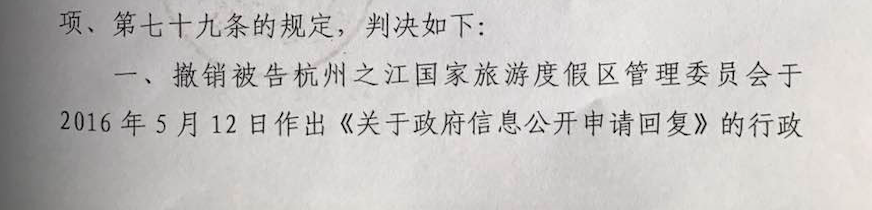 项、第七十九条的规定，判决如下：
一、撤销被告杭州之江国家旅游度假区管理委员会于
2016年5月12日作出《关于政府信息公开申请回复》的行政